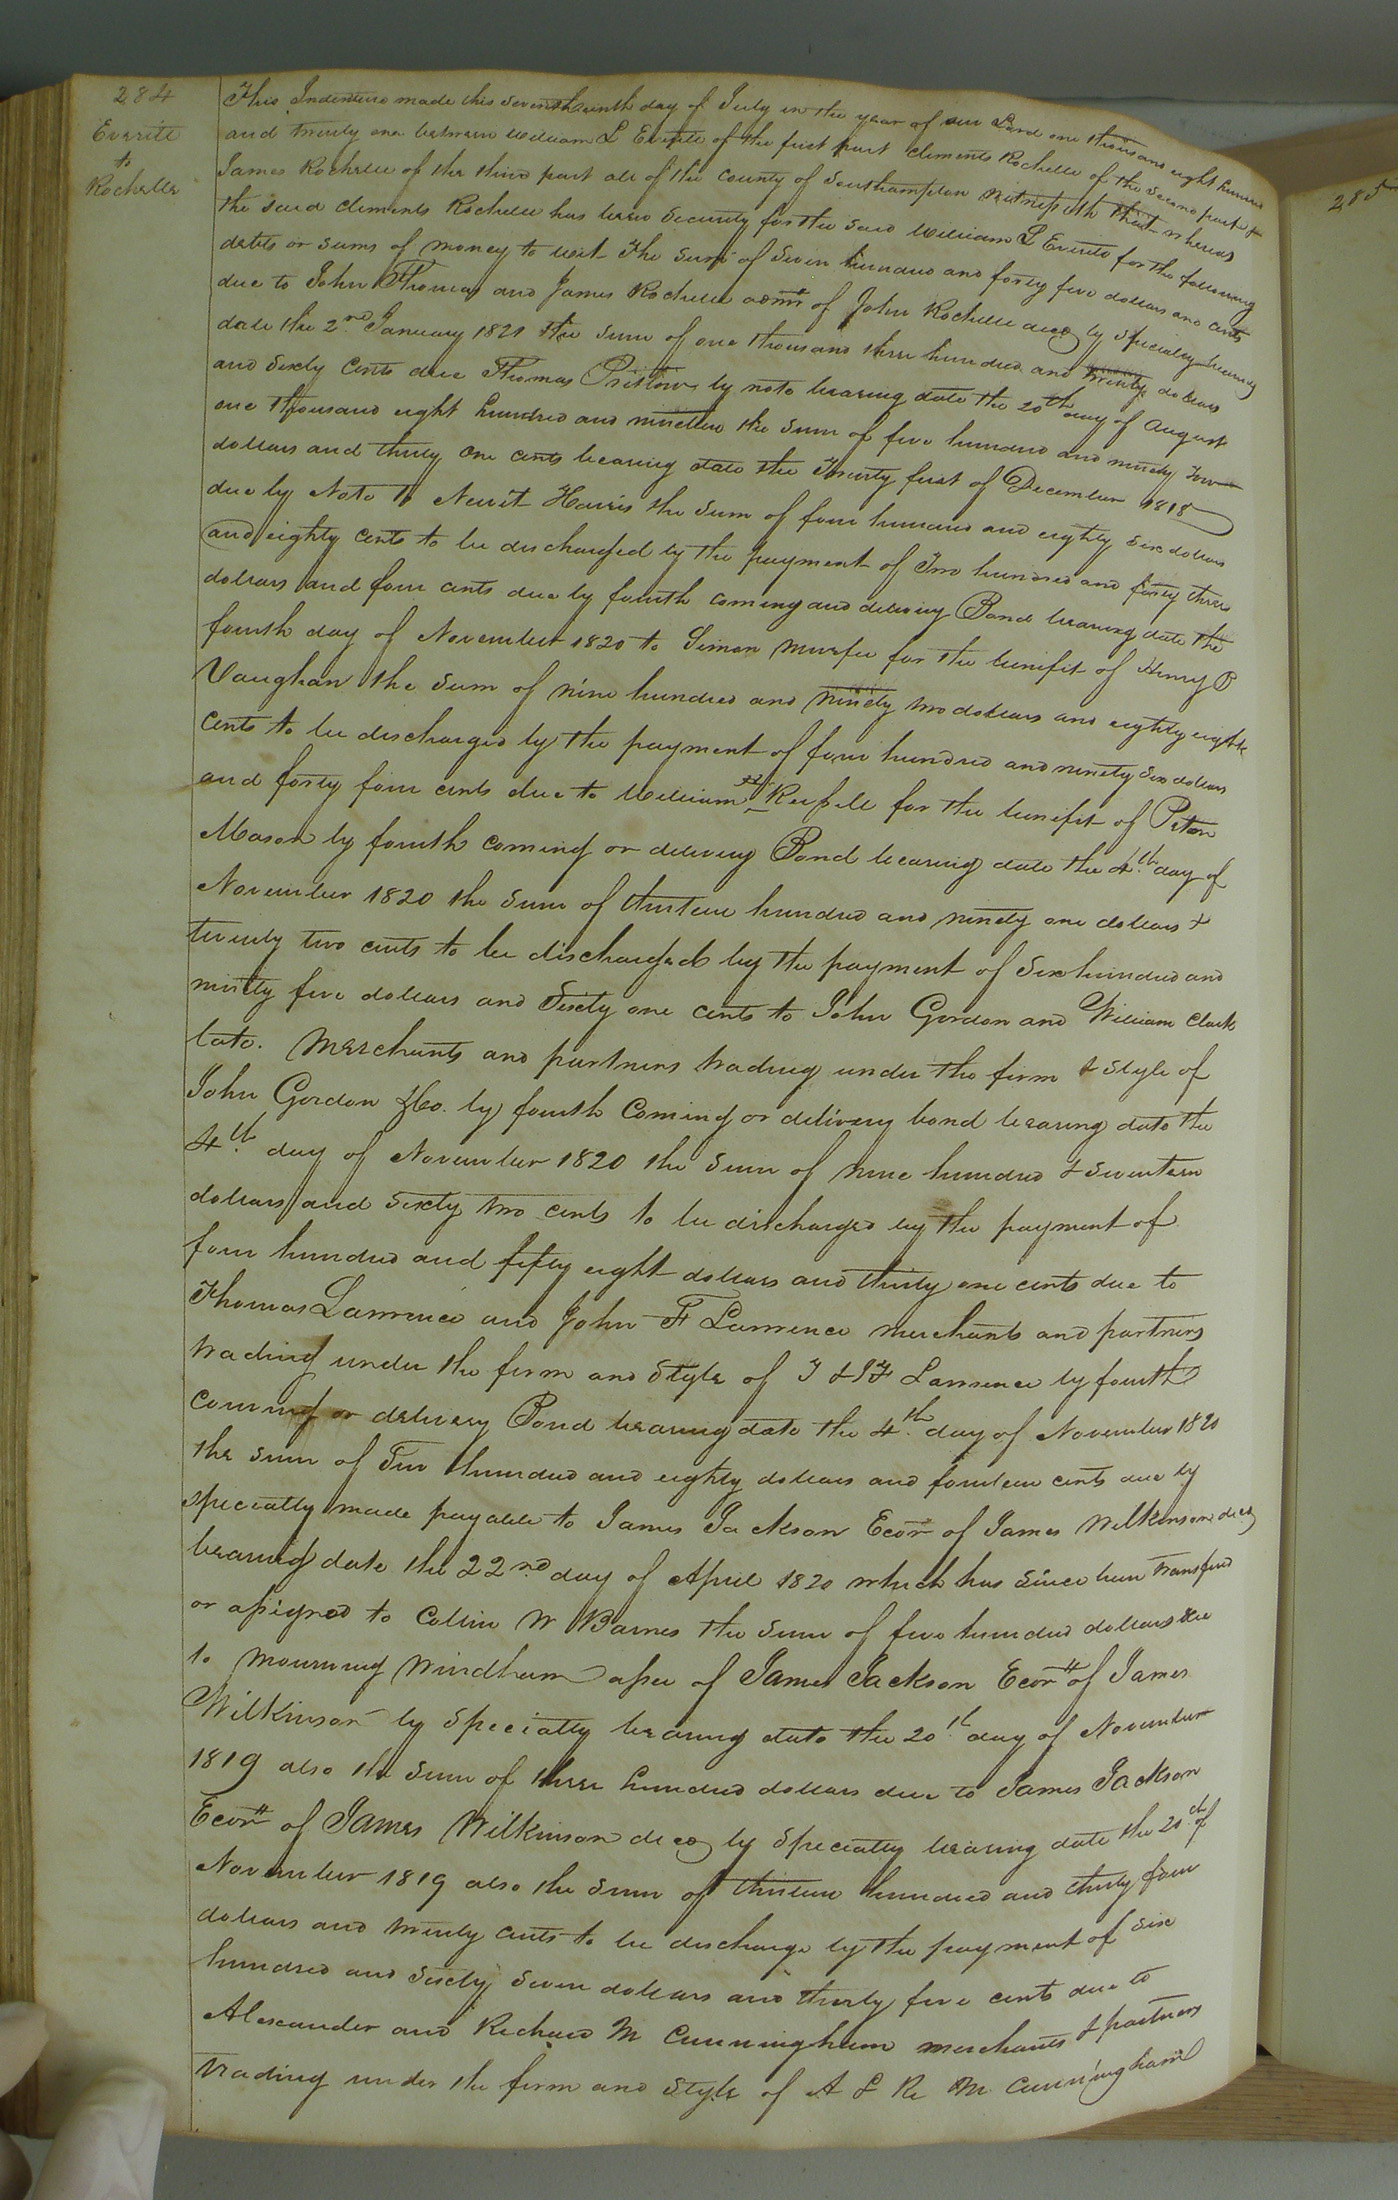 284
Everitt
to
Rochelle
This Indenture made this seventeenth day of July in the year of our Lord one thousand eight hundred
and twenty one between William L Everitt of the first part Clements Rochelle of the second part &
James Rochelle of the third part all of the County of Southampton Witnesseth that whereas
the said Clements Rochelle has been Security for the said William L Everitt for the following
debts or sums of money to wit The sum of seven hundred and forty five dollars and cents
due to John Thomas and James Rochelle admr of John Rochelle decd by Specialty bearing
date the 2nd January 1821 the sum of one thousand three hundred and twenty dollars
and sixty cents due Thomas Pretlow by note bearing date the 20th day of August
one thousand eight hundred and nineteen the sum of five hundred and ninety four
dollars and thirty one cents bearing date the Twenty first of December 1818
due by Note to Newit Harris the sum of four hundred and eighty six dollars
and eighty cents to be discharged by the payment of Two hundred and forty three
dollars and four cents due by fourth coming and delivery Bond bearing date the
fourth day of November 1820 to Simon Murfee for the benifit of Henry B
Vaughan the sum of nine hundred and ninety two dollars and eighty eight
cents to be discharged by the payment of four hundred and ninety six dollars
and forty four cents due to William Russell for the benifit of Peton
Mason by fourth coming or delivery Bond bearing date the 4th day of
November 1820 the sum of thirteen hundred and ninety one dollars &
twenty two cents to be discharged by the payment of Six hundred and
ninety five dollars and Sixty one cents to John Gordon and William Clark
late. Merchants and partners trading under the firm & style of
John Gordon & Co. by fourth Coming or delivery bond bearing date the
4th day of November 1820 the sum of nine hundred & seventeen
dollars and sixty two cents to be discharged by the payment of
four hundred and fifty eight dollars and thirty one cents due to
Thomas Lawrence and John F Lawrence merchants and partners
trading under the firm and Style of T & J F Lawrence by fourth
coming or delivery Bond bearing date the 4th day of November 1820
the sum of Two hundred and eighty dollars and fourteen cents due by
specialty made payable to James Jackson Ecor of James Wilkinson decd
bearing date the 22nd day of April 1820 which has since been transferd
or assigned to Collin W Barnes the sum of five hundred dollars due
to Mourning Windham assee of James Jackson Ecor of James
Wilkinson by Specialty bearing date the 20th day of November
1819 also the sum of three hundred dollars due to James Jackson
Ecor of James Wilkinson decd by Specialty bearing date the 20th of
November 1819 also the sum of thirteen hundred and thirty four
dollars and twenty cents to be discharge by the payment of six
hundred and sixty seven dollars and thirty five cents due to
Alexander and Richard M Cunningham merchants & partners
trading under the firm and style of A & R M Cunningham
285